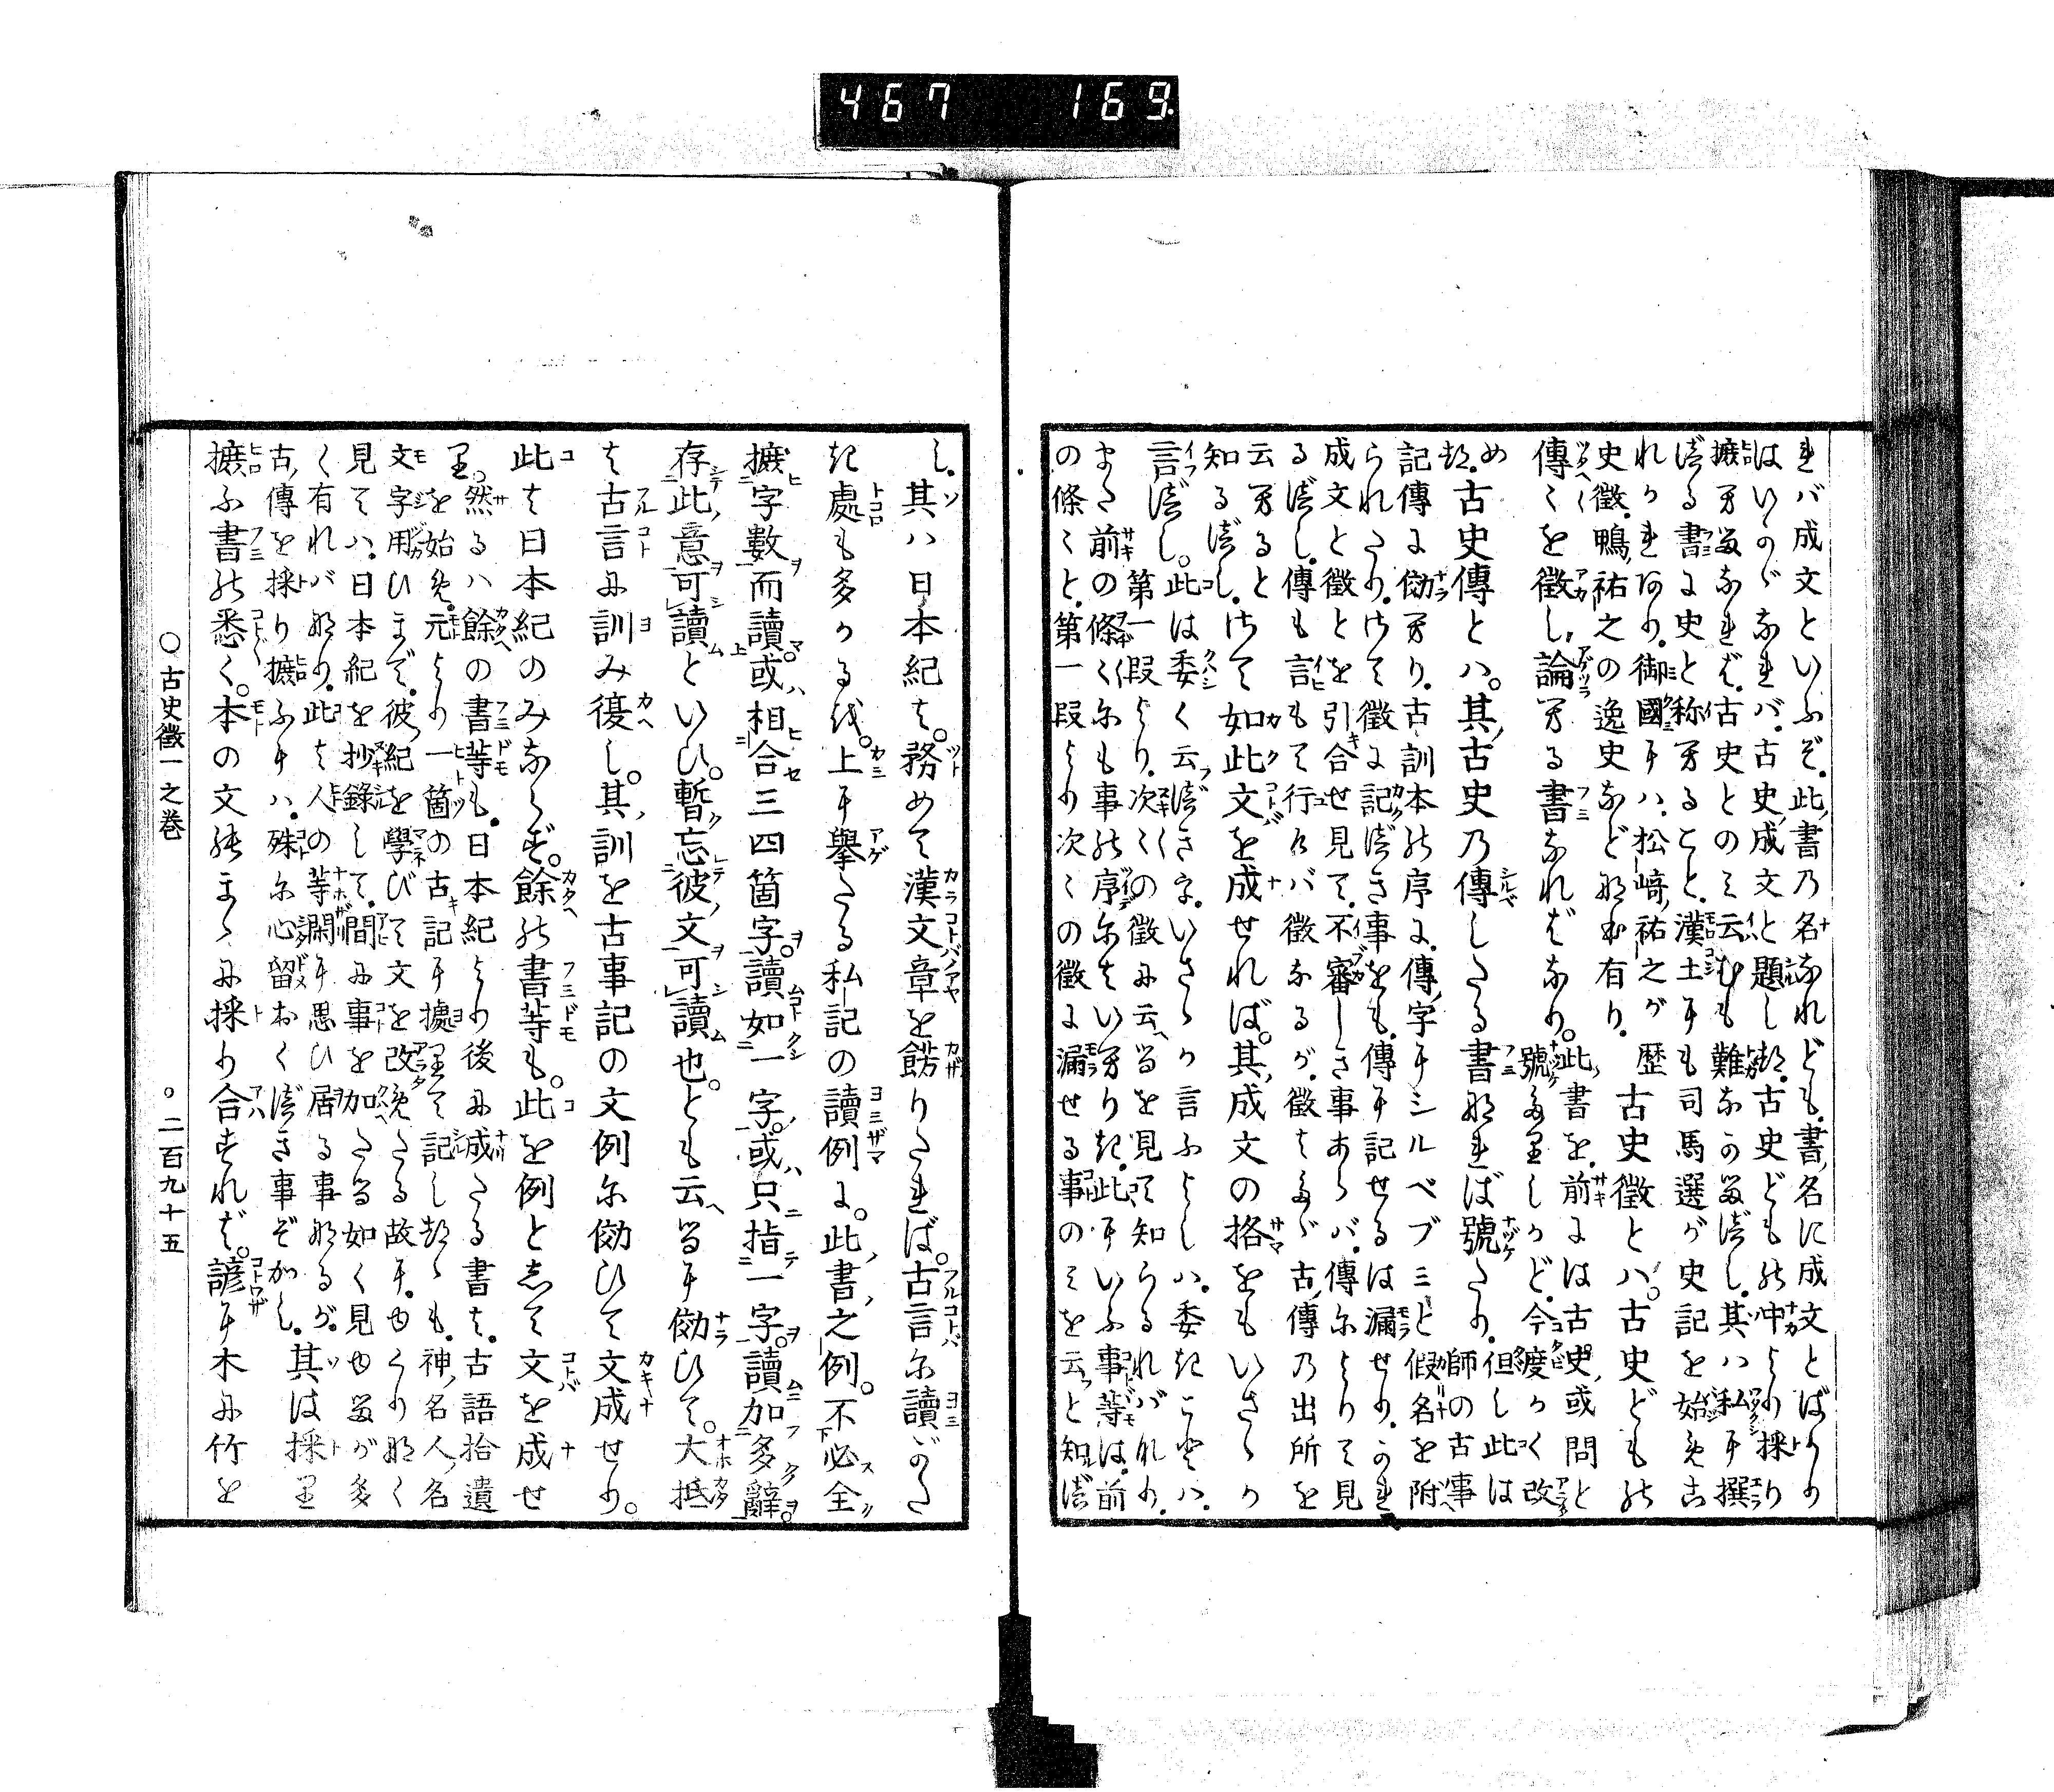 467 169
れバ成文といふぞ。此書乃名なれども。書名に成文とばかり
はいのゞなれバ。古史成文と題しき。古史どもの中より採り
摭ひるなれば。古史とのミ云むも難なかるべし。其ハ私に撰
べる書に史と称することゝ。漢土にも司馬遷が史記を始め古
れかれあり。御國にハ。松崎祐之が歴
史徴。鴨祐之の逸史など有り。古史徴とハ。古史どもの
傳々を徴し論へる書なればなり。此書を前には古史或問と
號たりしかど。今度かく改
め
き。古史傳とハ。其古史乃傳したる書なれば號たり。但し此は師の古事
記傳に傚へり。古訓本の序に。傳字にシルベブミと假名を附
られたり。さて徴に記べき事をも。傳に記せるは漏せり。かれ
成文と徴とを引合せ見て。不審しき事あらバ。傳によりて見
るべし。傳も言もて行けバ徴なるが。徴はたゞ古傳乃出所を
云へると
知るべし。さて如此文を成せれば。其成文の格をもいさゝか
言べし。此は委く云べきを。いさゝか言ふよしハ。委きことハ。
第一段より次々の徴に云へるを見て知らるれバなり。
また前の條々にも事の序にはいへりき。此にいふ事等は。前
の條々と。第一段より次々の徴に漏せる事のミを云ふと知べ
し。其ハ日本紀は。務めて漢文章を餝りたれば。古言に讀がた
き處も多かるを。上に擧たる私記の讀例に。此書之例。不必全
摭字數而讀。或相合三四箇字。讀如一字。或只指一字。讀加多辭。
存此意可讀といひ。暫忘彼文可讀也。とも云へるに傚ひて。大抵
は古言に訓み復し。其訓を古事記の文例に傚ひて文成せり。
此は日本紀のみならず。餘の書等も。此を例として文を成せ
り。然るハ餘の書等も。日本紀より後に成たる書は。古語拾遺
を始め。元より一箇の古記に據りて記しきゝも。神名人名
文字用ひまで。彼紀を學びて文を改めたる故に。
見てハ。日本紀を抄録して。間に事を加へたる如く見ゆるが多
く有れバなり。此は人の等閑に思ひ居る事なるが。其は採り
古傳を採り摭ふにハ。殊に心留おくべき事ぞかし。
摭ふ書の悉く。本の文のまゝに採り合すれば。諺に木に竹を
○古史徴一之巻
○二百九十五